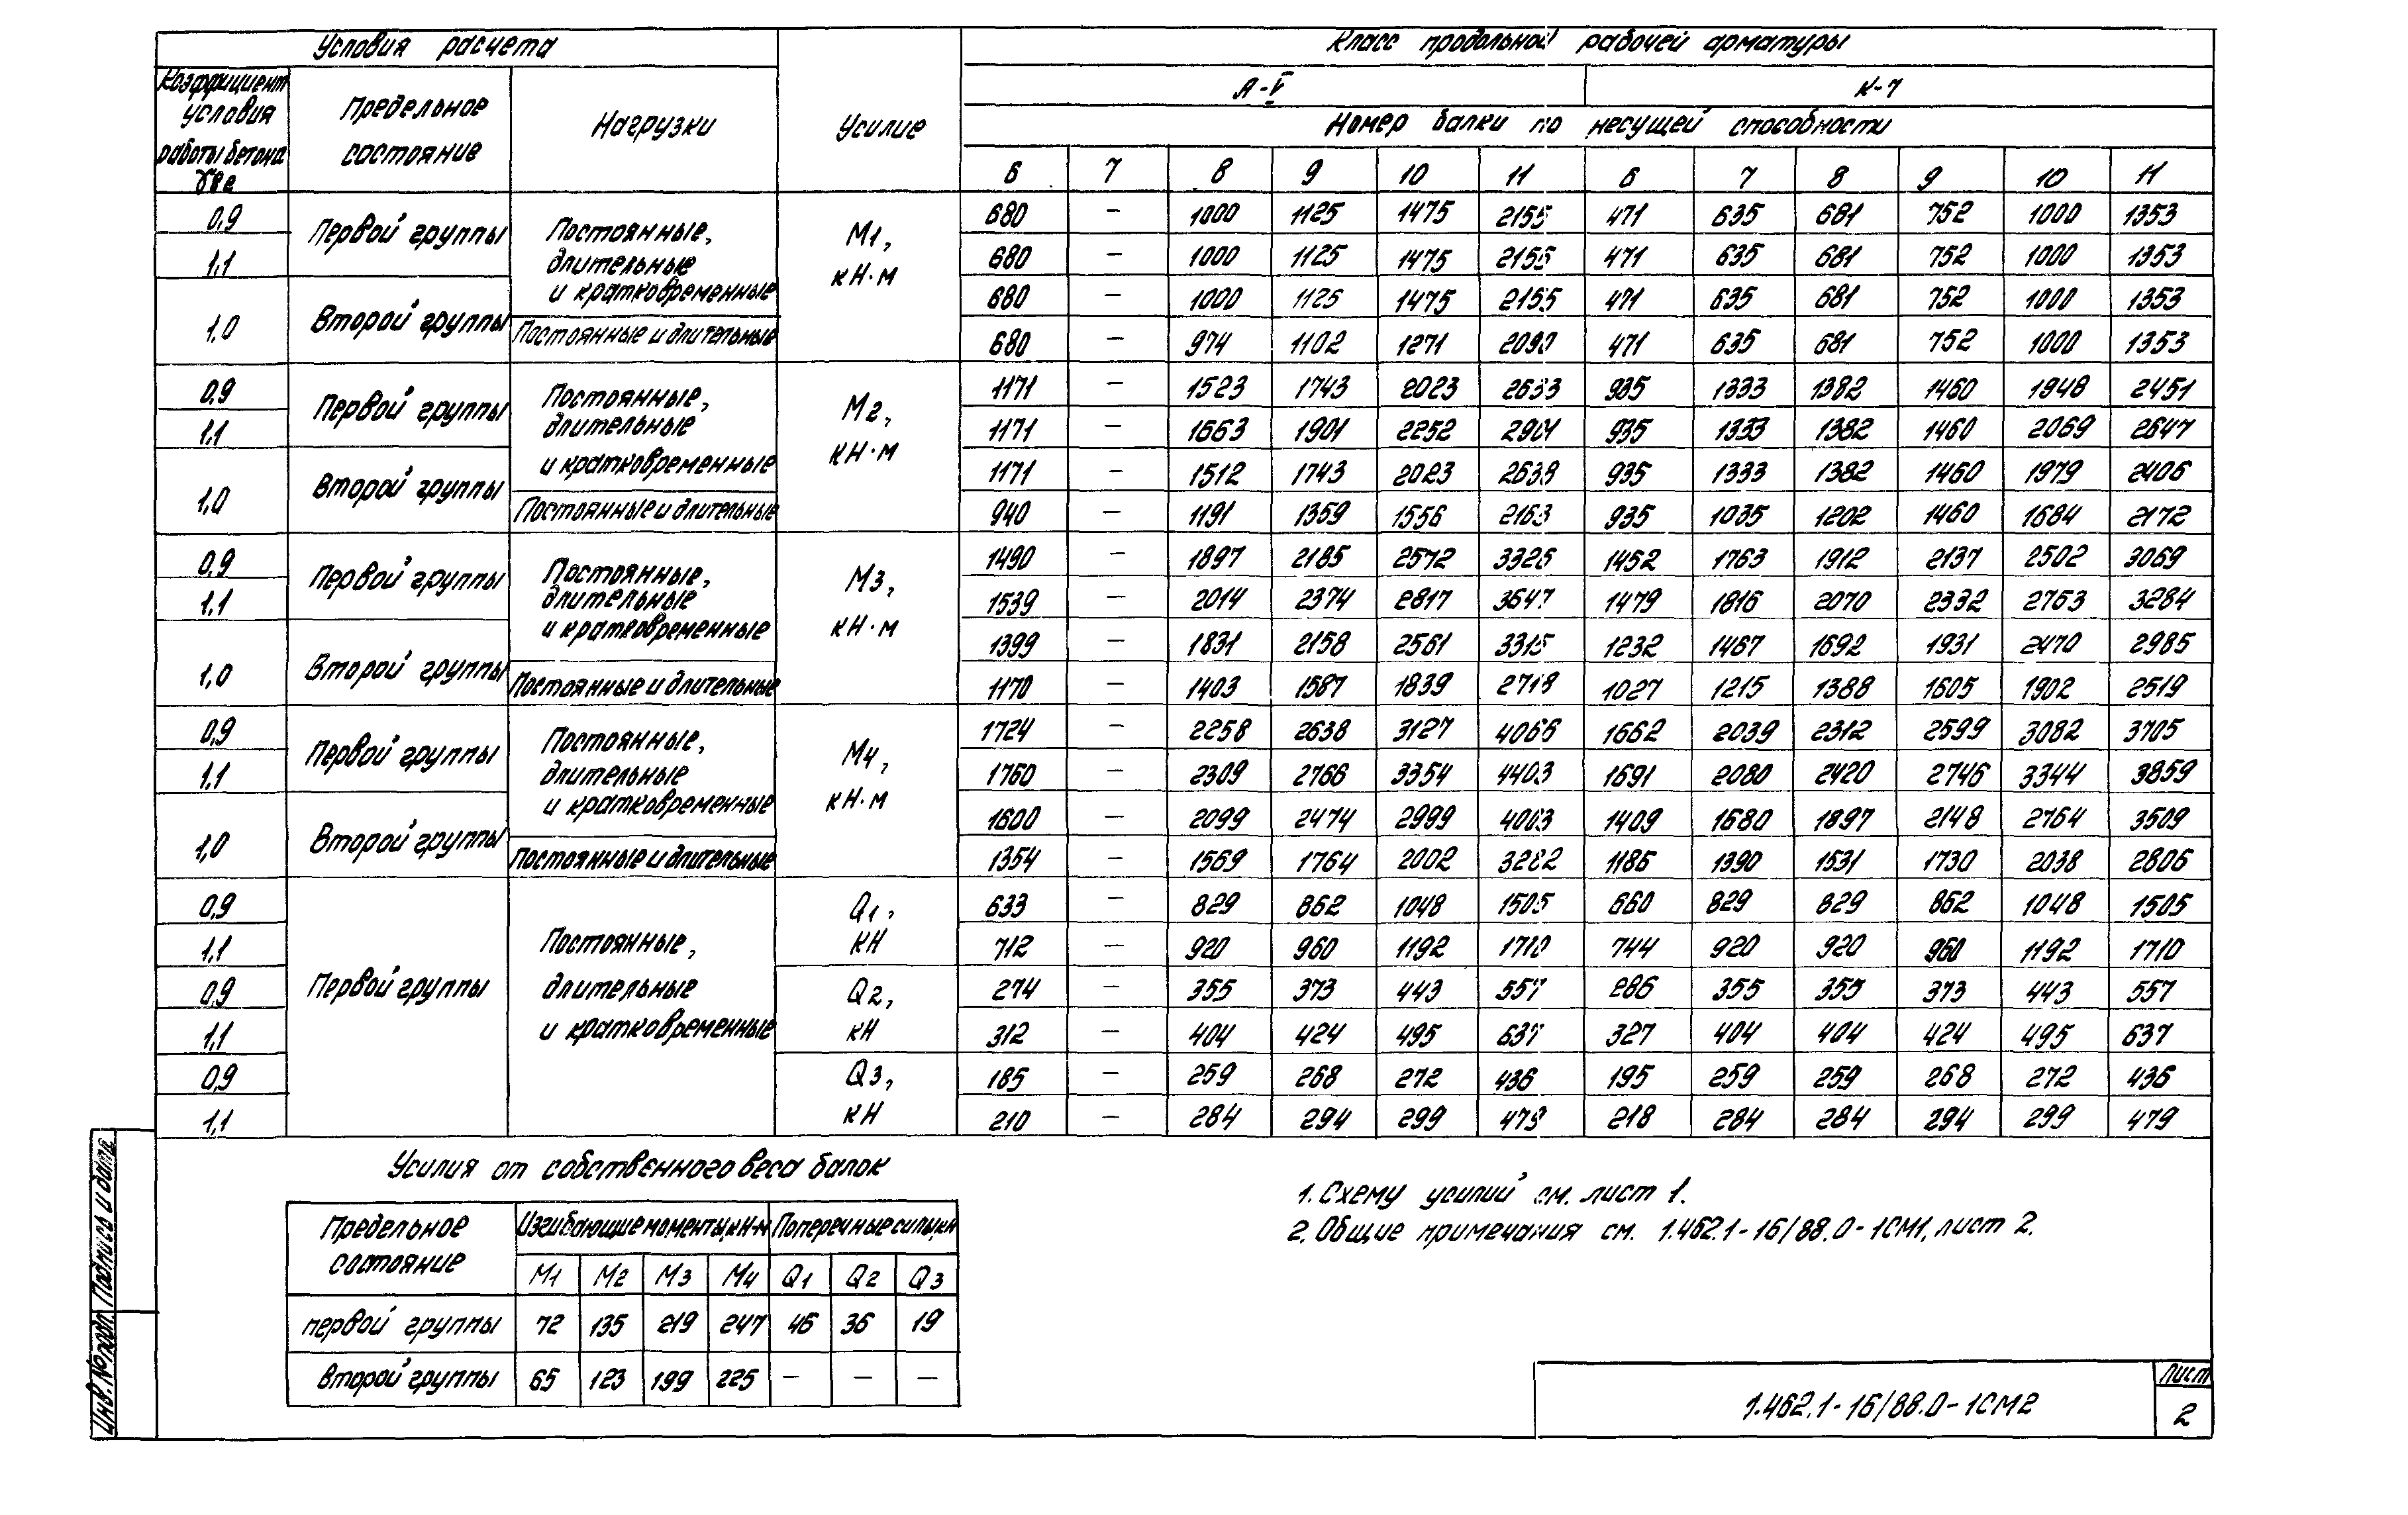 Условия расчета
Класс продольной рабочей арматуры
Коэффициент условия работы бетона γв2
Предельное состояние
Нагрузки
Усилие
А-V
К-7
Номер балки по несущей способности
6 7 8 9 10 11 6 7 8 9 10 11
0,9 Первой группы Постоянные, длительные и кратковременные М1, кН·м 680 – 1000 1125 1475 2155 471 635 681 752 1000 1353
1,1 680 – 1000 1125 1475 2155 471 635 681 752 1000 1353
1,0 Второй группы 680 – 1000 1125 1475 2155 471 635 681 752 1000 1353
Постоянные и длительные 680 – 974 1102 1271 2090 471 635 681 752 1000 1353
0,9 Первой группы Постоянные, длительные и кратковременные М2, кН·м 1171 – 1523 1743 2023 2633 935 1333 1382 1460 1948 2451
1,1 1171 – 1663 1901 2252 2901 935 1333 1382 1460 2069 2647
1,0 Второй группы 1171 – 1512 1743 2023 2638 935 1333 1382 1460 1979 2406
Постоянные и длительные 940 – 1191 1359 1556 2163 935 1035 1202 1460 1684 2172
0,9 Первой группы Постоянные, длительные и кратковременные М3, кН·м 1490 – 1897 2185 2572 3326 1452 1763 1912 2137 2502 3069
1,1 1539 – 2014 2374 2817 3647 1479 1816 2070 2332 2763 3284
1,0 Второй группы 1399 – 1831 2158 2561 3315 1232 1467 1692 1931 2470 2985
Постоянные и длительные 1170 – 1403 1587 1839 2718 1027 1215 1388 1605 1902 2519
0,9 Первой группы Постоянные, длительные и кратковременные М4, кН·м 1724 – 2258 2638 3127 4066 1662 2039 2312 2599 3082 3705
1,1 1760 – 2309 2766 3354 4403 1691 2080 2420 2746 3344 3859
1,0 Второй группы 1600 – 2099 2474 2999 4003 1409 1680 1897 2148 2764 3509
Постоянные и длительные 1354 – 1569 1764 2002 3282 1186 1390 1531 1730 2038 2806
0,9 Первой группы Постоянные, длительные и кратковременные Q1, кН 633 – 829 862 1048 1505 660 829 829 862 1048 1505
1,1 712 – 920 960 1192 1710 744 920 920 960 1192 1710
0,9 Q2, кН 274 – 355 373 443 557 286 355 355 373 443 557
1,1 312 – 404 424 495 637 327 404 404 424 495 637
0,9 Q3, кН 185 – 259 268 272 436 195 259 259 268 272 436
1,1 210 – 284 294 299 479 218 284 284 294 299 479
Усилия от собственного веса балок
Предельное состояние
Изгибающие моменты, кН·м Поперечные силы, кН
М1 М2 М3 М4 Q1 Q2 Q3
первой группы 72 135 219 247 46 36 19
второй группы 65 123 199 225 – – –
1. Схему усилий см. лист 1.
2. Общие примечания см. 1.462.1-16/88.0-1СМ1, лист 2.
Инв. № подл. Подпись и дата
1.462.1-16/88.0-1СМ2
Лист
2